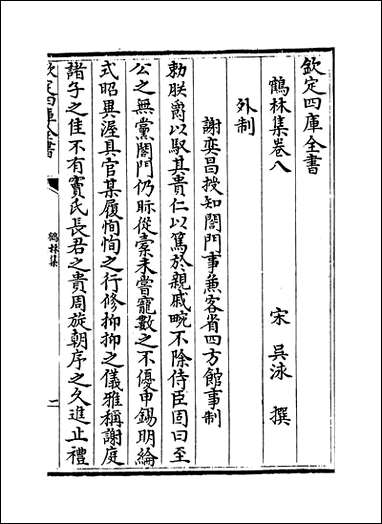 欽定四庫全書
鶴林集卷八
宋 吳泳 撰
外制
謝奕昌授知閤門事兼客省四方館事制
勅朕爵以馭其貴仁以篤於親戚畹不除侍臣固曰至
公之無黨閤門仍眂從橐未嘗寵數之不優申錫明綸
式昭異渥具官某履恂恂之行修抑抑之儀雅稱謝庭
諸子之佳不有竇氏長君之貴周旋朝序之久進止禮
欽定四庫全書
鶴林集